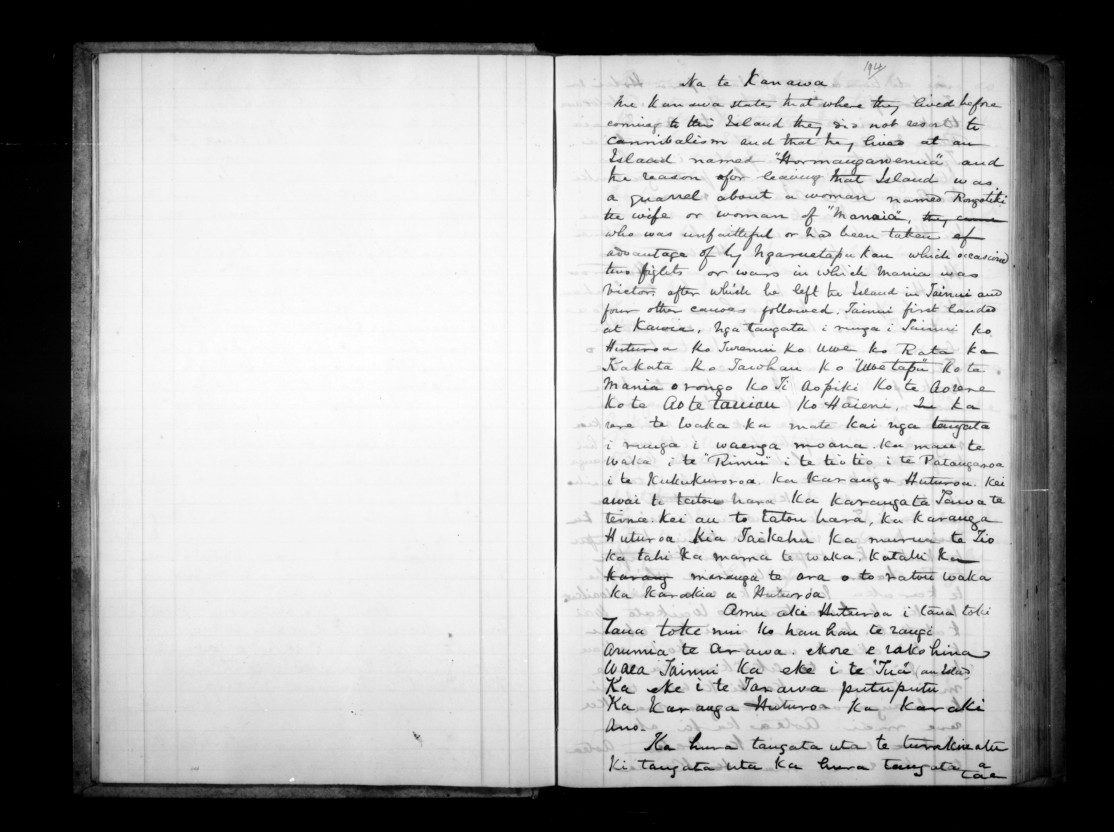 194
Na te Kanawa
Te Kanawa states that where they lived before
coming to this Island they did not resort to
cannibalism and that they lived at an
Island named "Hormangawenua" and
the reason for leaving that Island was
a quarrel about a woman named Rongotiki
the wife or woman of "Manaia", they came
who was unfaithful or had been taken of
advantage of by Ngaruetapukau which occasioned
two fights or wars in which Mania was
victor, after which he left the Island in Tainui and
four other canoes followed. Tainui first landed
at Kawia, nga tangata i runga i Tainui ko
Huturoa Ko Turenui Ko Uwe ko Rata ka
Kakata Ko Tawhau Ko "Uwetapu" Ko te
Mania orongo Ko Ti Aopiki Ko te Aorere
Ko te Aotetauiau Ko Haieni, ka
rere te waka ka mate kai nga tangata
i runga i waenga moana ka mau te
waka i te "Rimu" i te tiotio i te Patangaroa
i te Kukukuroroa. Ka Karanga Huturoa. Kei
awai te tatou hara Ka Karangata Tawa te
terna Kei au to tatou hara, Ka Karanga
Huturoa Kia Taikehu Ka murui te Tio
ka tahi Ka mama te waka. Katahi Ka
Karang maranga te ara o to ratou waka
Ka Karakia a Huturoa
Amu ake Huturoa i tana toki
Tana toke nui Ko hau hau te rangi
Arumia te Arawa. ekore e rakohina
Waea Tainui Ka eke i te "Tua" an Island
Ka eke i te Tarawa putuputu
Ka Karanga Huturoa Ka Karaki
ano.
Ka hura tangata uta te turakina atu
Ki tangata uta ka hura tangata a
tae